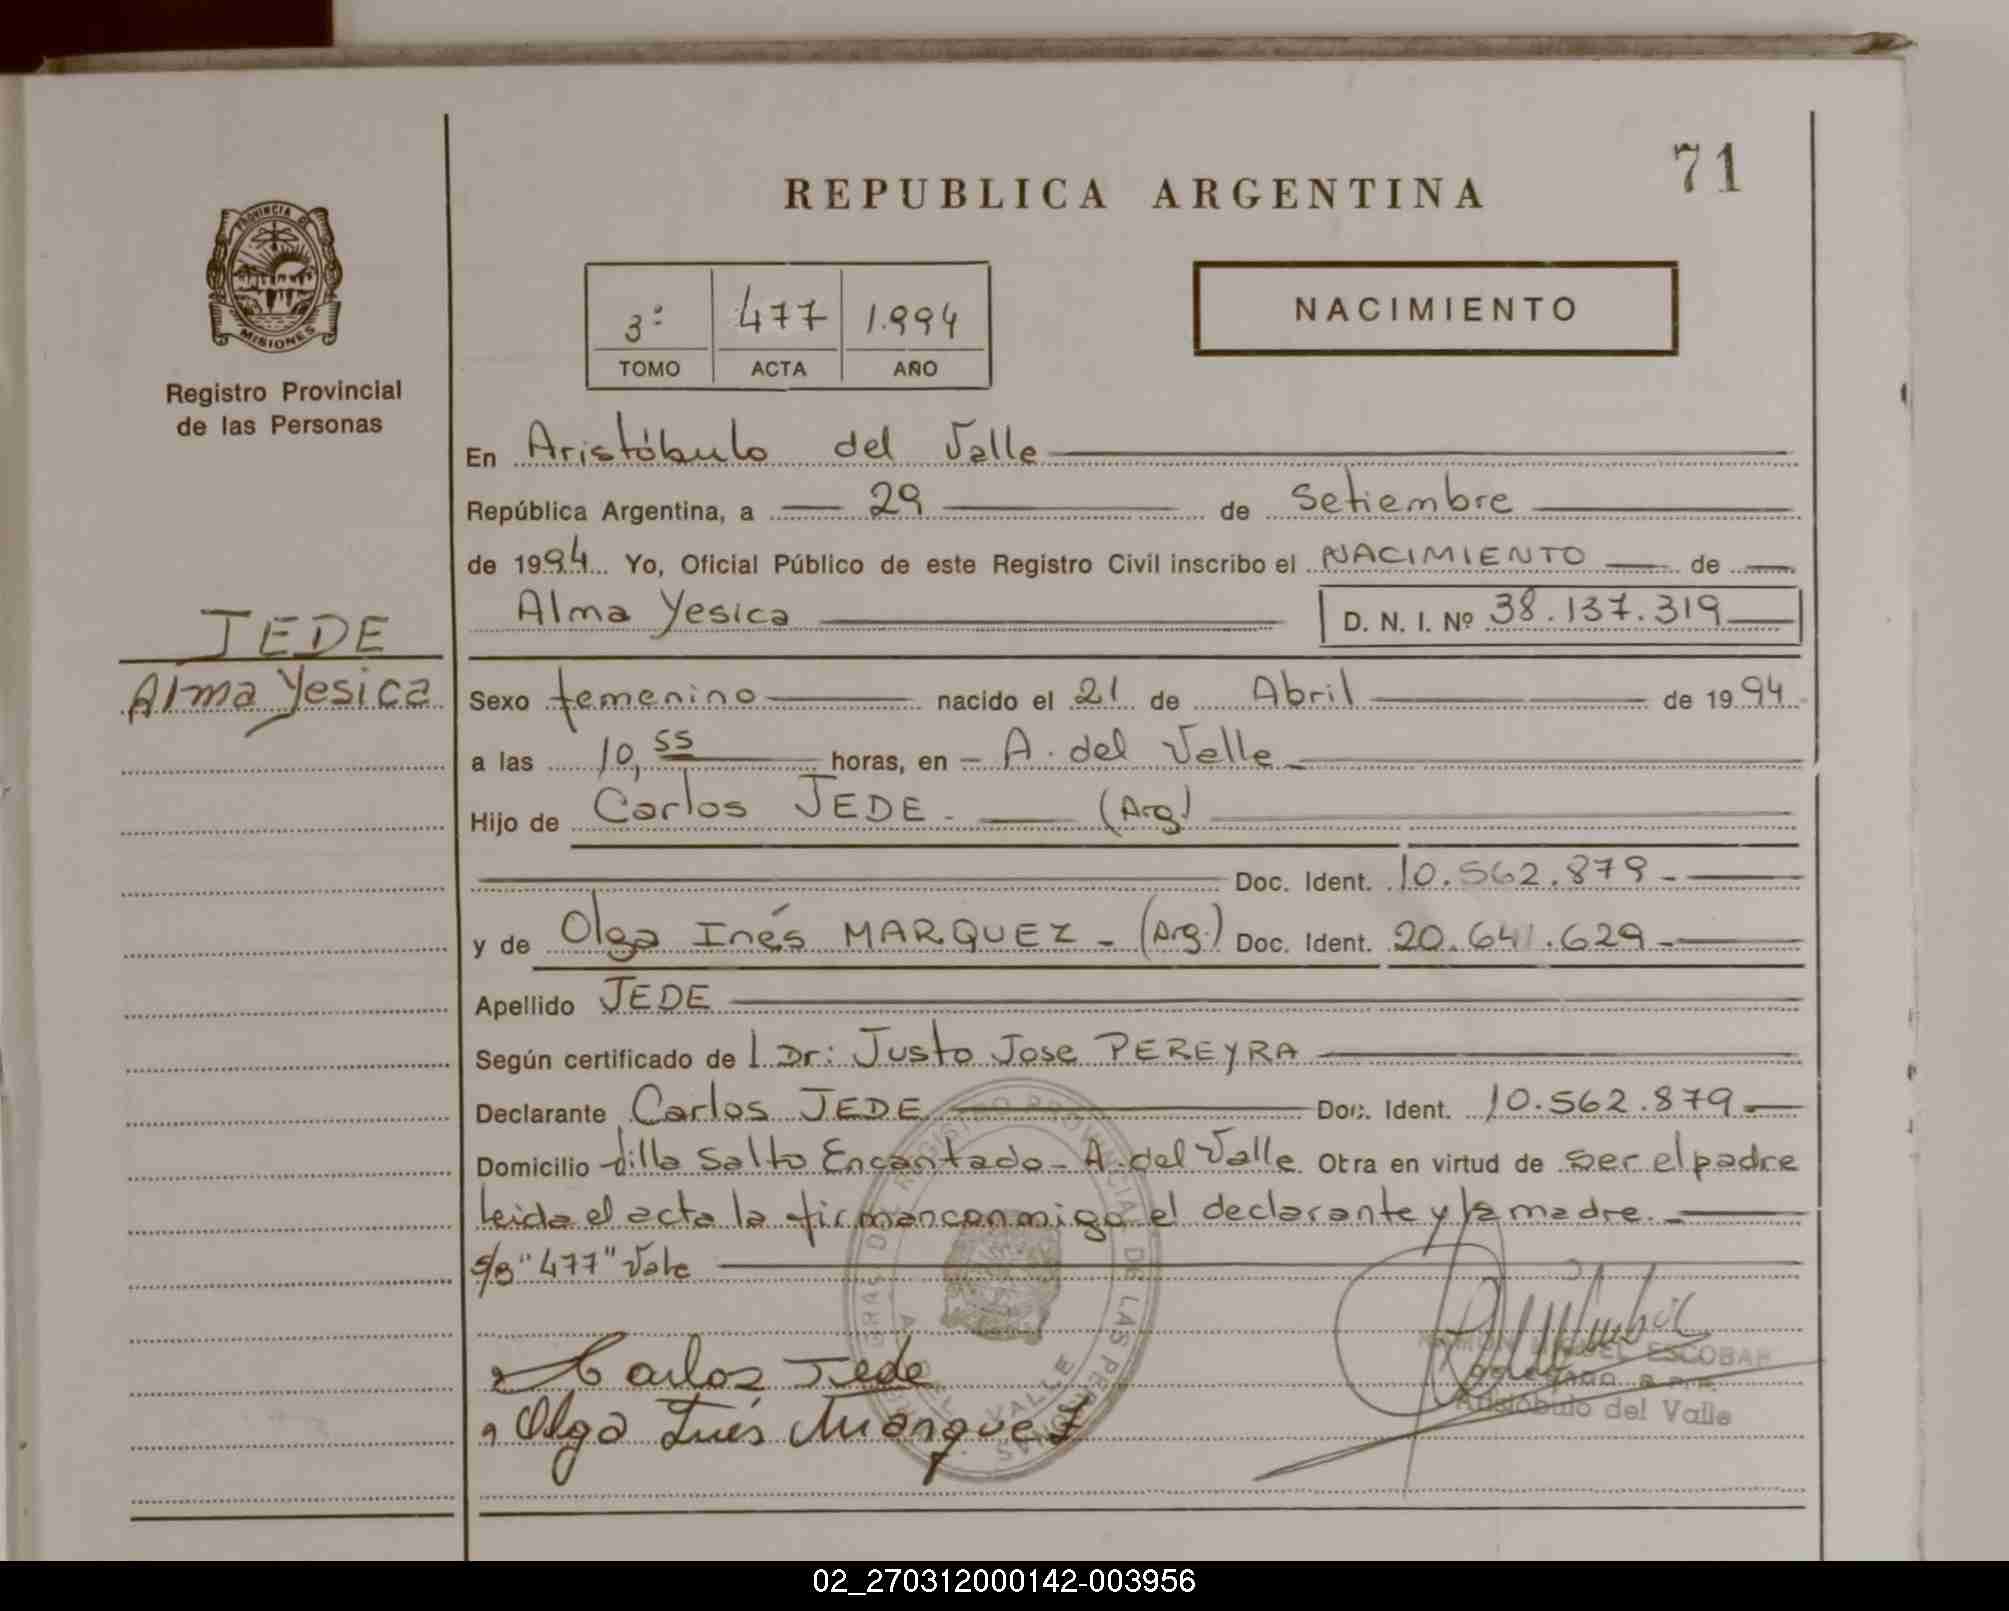 71
REPUBLICA ARGENTINA
PROVINCIA DE
MISIONES
Registro Provincial
de las Personas
3º 477 1.994
TOMO ACTA AÑO
NACIMIENTO
En Aristóbulo del Valle
República Argentina, a 29 de Setiembre
de 1994 Yo, Oficial Público de este Registro Civil inscribo el NACIMIENTO de
JEDE
Alma Yesica
Alma Yesica D. N. I. Nº 38.137.319
Sexo femenino nacido el 21 de Abril de 1994
a las 10,55 horas, en A. del Valle
Hijo de Carlos JEDE (Arg)
Doc. Ident. 10.562.879
y de Olga Inés MARQUEZ - (Arg.) Doc. Ident. 20.641.629
Apellido JEDE
Según certificado de l Dr: Justo Jose PEREYRA
Declarante Carlos JEDE Doc. Ident. 10.562.879
Domicilio Villa Salto Encantado - A. del Valle Obra en virtud de ser el padre
leida el acta la firman conmigo el declarante y la madre.
s/b "477" Vale
Carlos Jede
Olga Inés Marquez
RAMON MIGUEL ESCOBAR
Aristóbulo del Valle
REGISTRO PROVINCIAL DE LAS PERSONAS
DEL VALLE
02_270312000142-003956